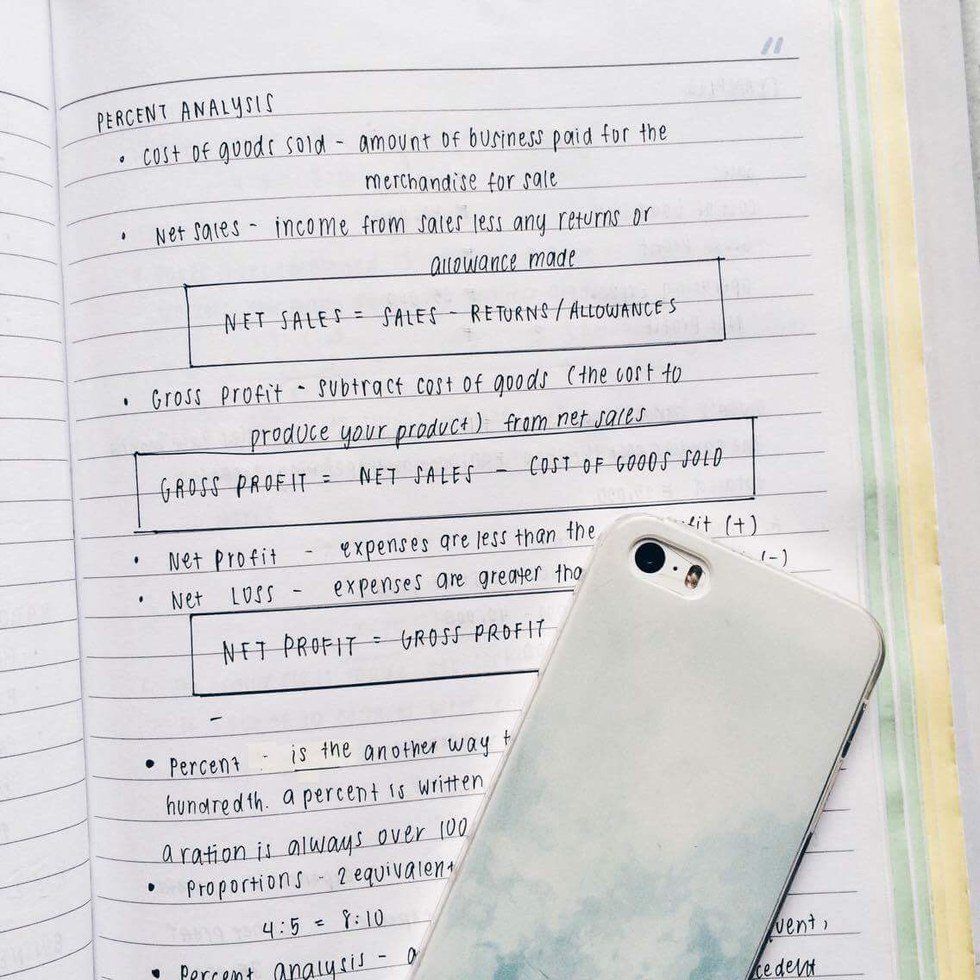 PERCENT ANALYSIS
• cost of goods sold - amount of business paid for the
merchandise for sale
• Net sales - income from sales less any returns or
allowance made
NET SALES = SALES - RETURNS/ALLOWANCES
• Gross profit - subtract cost of goods (the cost to
produce your product) from net sales
GROSS PROFIT = NET SALES - COST OF GOODS SOLD
• Net profit - expenses are less than the (+)
• Net Loss - expenses are greater (-)
NET PROFIT = GROSS PROFIT
-
• Percent - is the another way
hundredth. a percent is written
a ration is always over 100
• Proportions - 2 equivalent
4:5 = 8:10
• Percent analysis -